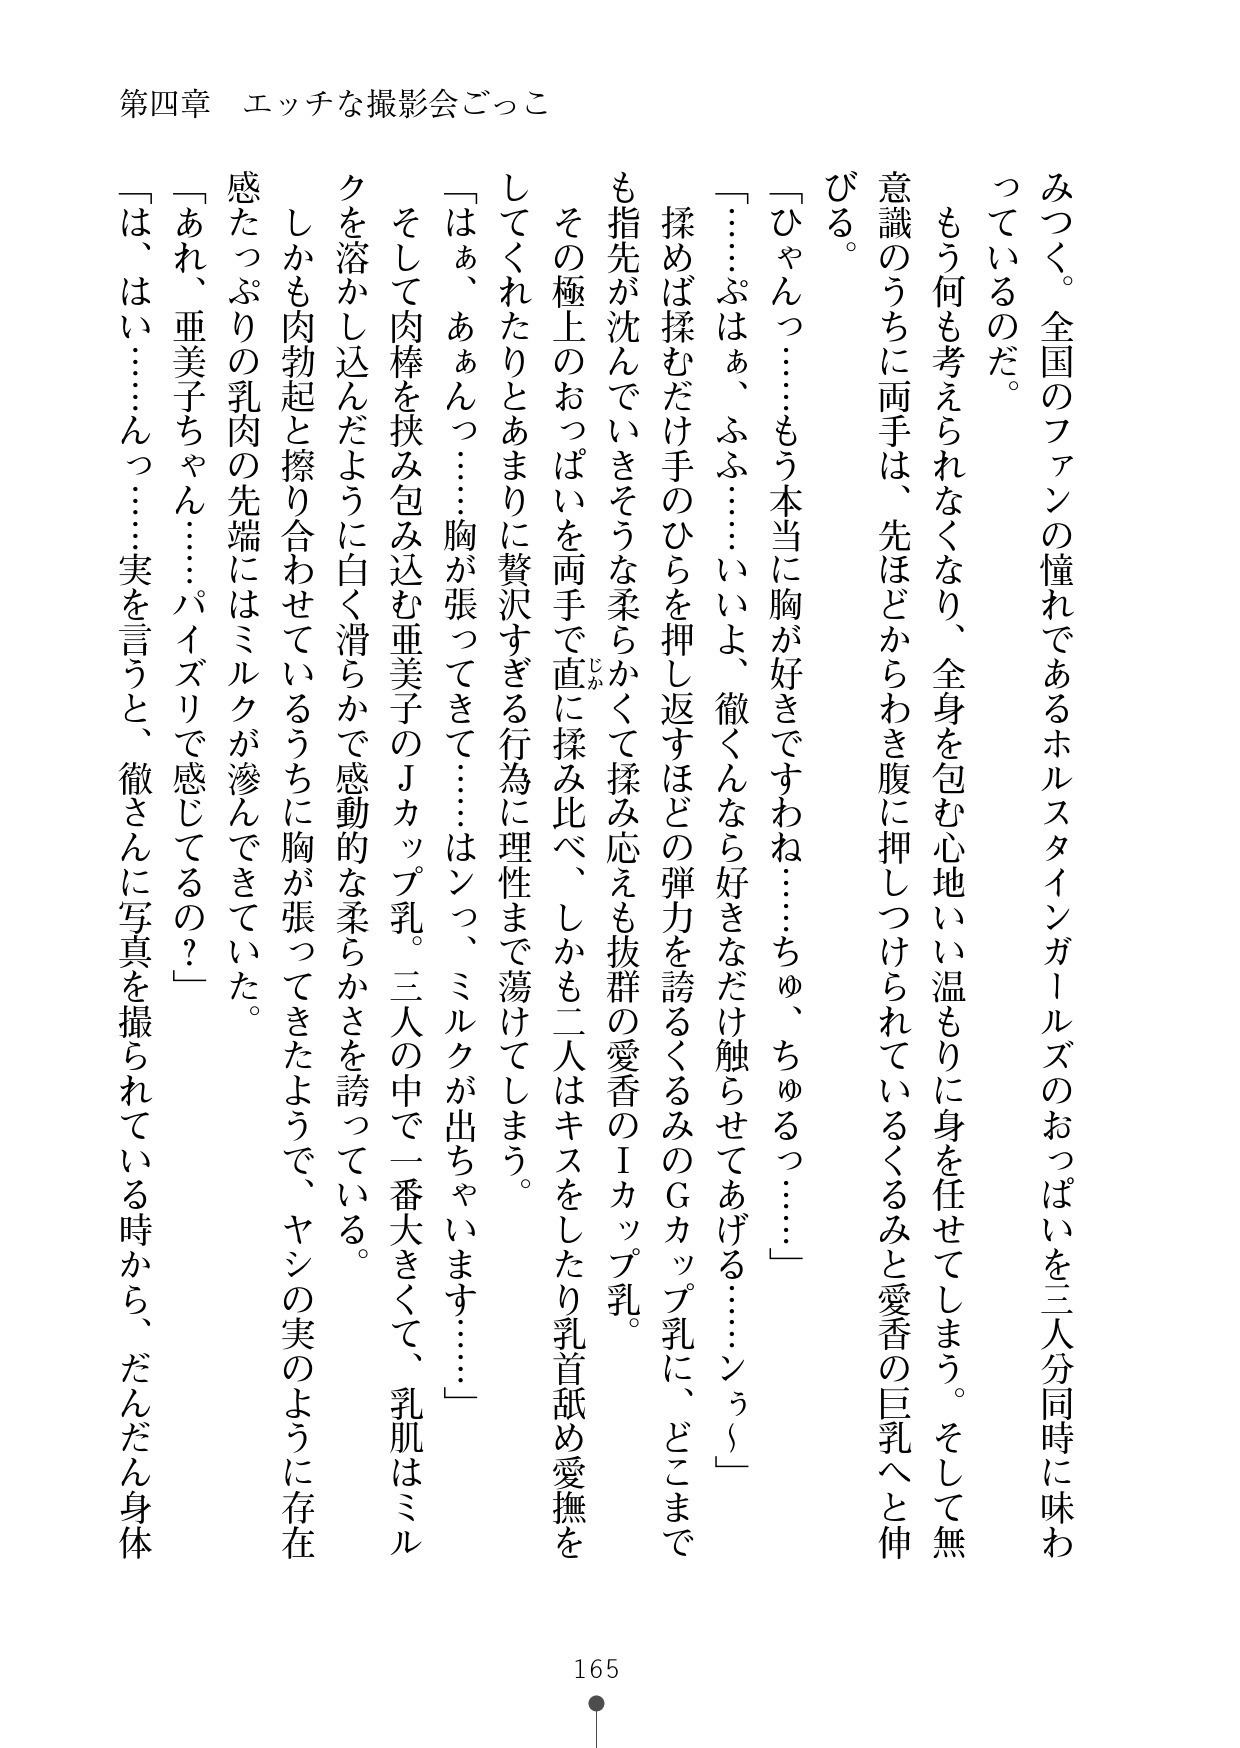 第四章　エッチな撮影会ごっこ
みつく。全国のファンの憧れであるホルスタインガールズのおっぱいを三人分同時に味わ
っているのだ。
　もう何も考えられなくなり、全身を包む心地いい温もりに身を任せてしまう。そして無
意識のうちに両手は、先ほどからわき腹に押しつけられているくるみと愛香の巨乳へと伸
びる。
「ひゃんっ……もう本当に胸が好きですわね……ちゅ、ちゅるっ……」
「……ぷはぁ、ふふ……いいよ、徹くんなら好きなだけ触らせてあげる……ンぅ～」
　揉めば揉むだけ手のひらを押し返すほどの弾力を誇るくるみのＧカップ乳に、どこまで
も指先が沈んでいきそうな柔らかくて揉み応えも抜群の愛香のＩカップ乳。
　その極上のおっぱいを両手で直じかに揉み比べ、しかも二人はキスをしたり乳首舐め愛撫を
してくれたりとあまりに贅沢すぎる行為に理性まで蕩けてしまう。
「はぁ、あぁんっ……胸が張ってきて……はンっ、ミルクが出ちゃいます……」
　そして肉棒を挟み包み込む亜美子のＪカップ乳。三人の中で一番大きくて、乳肌はミル
クを溶かし込んだように白く滑らかで感動的な柔らかさを誇っている。
　しかも肉勃起と擦り合わせているうちに胸が張ってきたようで、ヤシの実のように存在
感たっぷりの乳肉の先端にはミルクが滲んできていた。
「あれ、亜美子ちゃん……パイズリで感じてるの？」
「は、はい……んっ……実を言うと、徹さんに写真を撮られている時から、だんだん身体
165